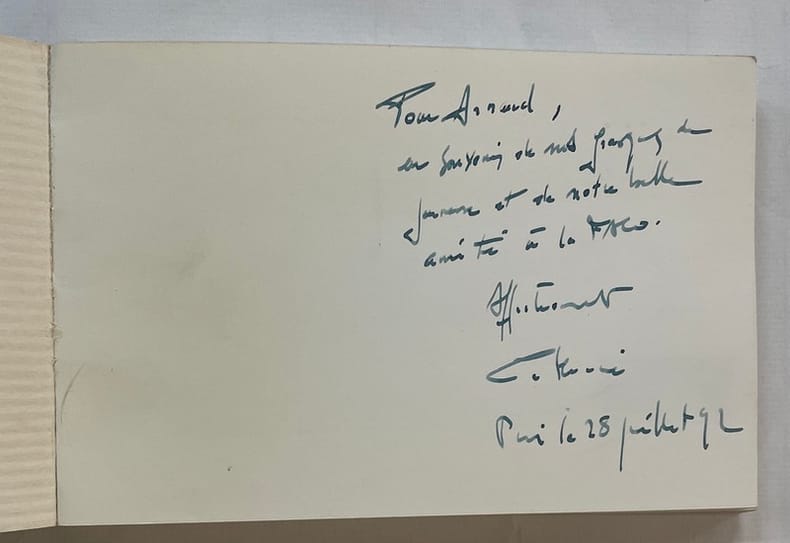 Pour Arnaud,
en souvenir de nos frasques de
jeunesse et de notre belle
amitié à la FACO.
Affectueusement
Paris le 28 juillet 92